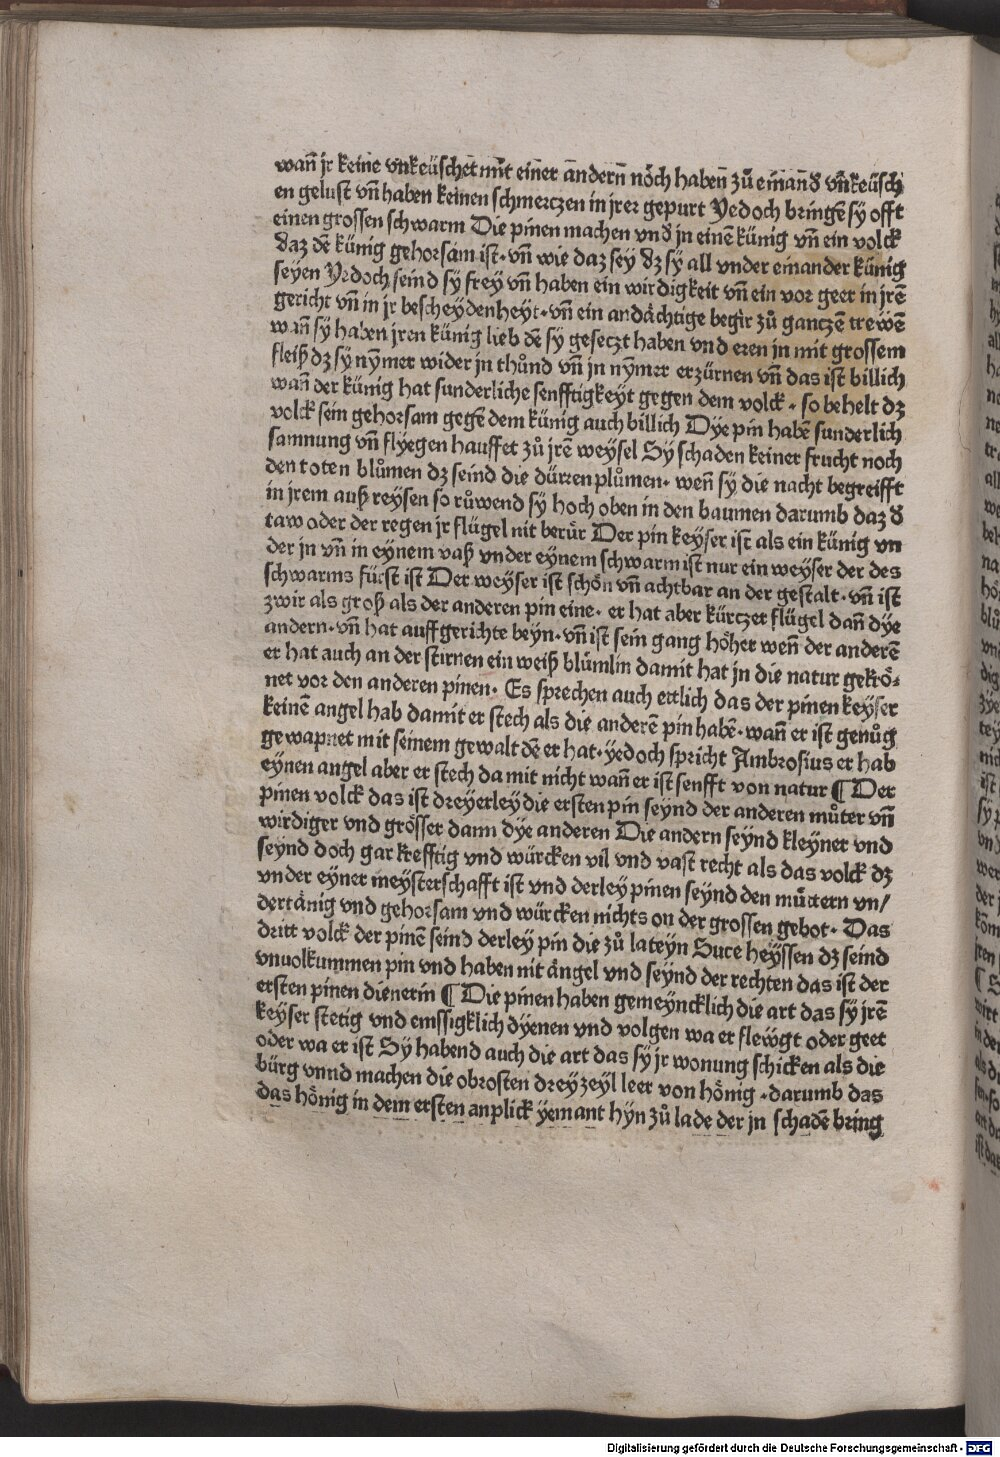 wañ jr keine vnkeüschet mit einer andern noch haben zů emand vnkeüsch
en gelust vñ haben keinen schmertzen in jrer gepurt Yedoch bringē sy offt
einen grossen schwarm Die pinen machen vnd jn einē künig vñ ein volck
daz dē künig gehorsam ist· vñ wie daz sey dz sy all vnder einander künig
seyen Yedoch seind sy frey vñ haben ein wirdigkeit vñ ein vor geer in jrē
gericht vñ in jr bescheydenheyt· vñ ein andächtige begir zů gantzē trewē
wañ sy haben jren künig lieb dē sy gesetzt haben vnd eren jn mit grossem
fleiß dz sy nymer wider jn thůnd vñ jn nymer erzürnen vñ das ist billich
wañ der künig hat sunderliche senfftigkeyt gegen dem volck· so behelt dz
volck sein gehorsam gegē dem künig auch billich Dye pin habē sunderlich
samnung vñ flyegen hauffet zů jrē weysel Sy schaden keiner frucht noch
den toten blůmen dz seind die dürren plůmen· weñ sy die nacht begreifft
in jrem auß reysen so růwend sy hoch oben in den baumen darumb daz d
taw oder der regen jr flügel nit berür Der pin keyser ist als ein künig vn
der jn vñ in eynem vaß vnder eynem schwarm ist nur ein weyser der des
schwarms fürst ist Der weyser ist schön vñ achtbar an der gestalt· vñ ist
zwir als groß als der anderen pin eine· er hat aber kürtzer flügel dañ dye
andern· vñ hat auffgerichte beyn· vñ ist sein gang höher weñ der anderē
er hat auch an der stirnen ein weiß blümlin damit hat jn die natur gekrö⸗
net vor den anderen pinen· Es sprechen auch ettlich das der pinen keyser
keinē angel hab damit er stech als die anderē pin habē· wañ er ist genůg
gewapnet mit seinem gewalt dē er hat· yedoch spricht Ambrosius er hab
eynen angel aber er stech da mit nicht wañ er ist senfft von natur ¶ Der
pinen volck das ist dreyerley die ersten pin seynd der anderen můter vñ
wirdiger vnd grösser dann dye anderen Die andern seynd kleyner vnd
seynd doch gar krefftig vnd würcken vil vnd vast recht als das volck dz
vnder eyner meysterschafft ist vnd derley pinen seynd den müttern vn/
dertänig vnd gehorsam vnd würcken nichts on der grossen gebot· Das
dritt volck der pinē seind derley pin die zů lateyn Suce heyssen dz seind
vnuolkummen pin vnd haben nit ängel vnd seynd der rechten das ist der
ersten pinen dienerin ¶ Die pinen haben gemeyncklich die art das sy jrē
keyser stetig vnd emssigklich dyenen vnd volgen wa er flewgt oder geet
oder wa er ist Sy habend auch die art das sy jr wonung schicken als die
bürg vnnd machen die obrosten drey zeyl leer von hönig· darumb das
das hönig in dem ersten anplick yemant hyn zů lade der jn schadē bring
Digitalisierung gefördert durch die Deutsche Forschungsgemeinschaft - DFG